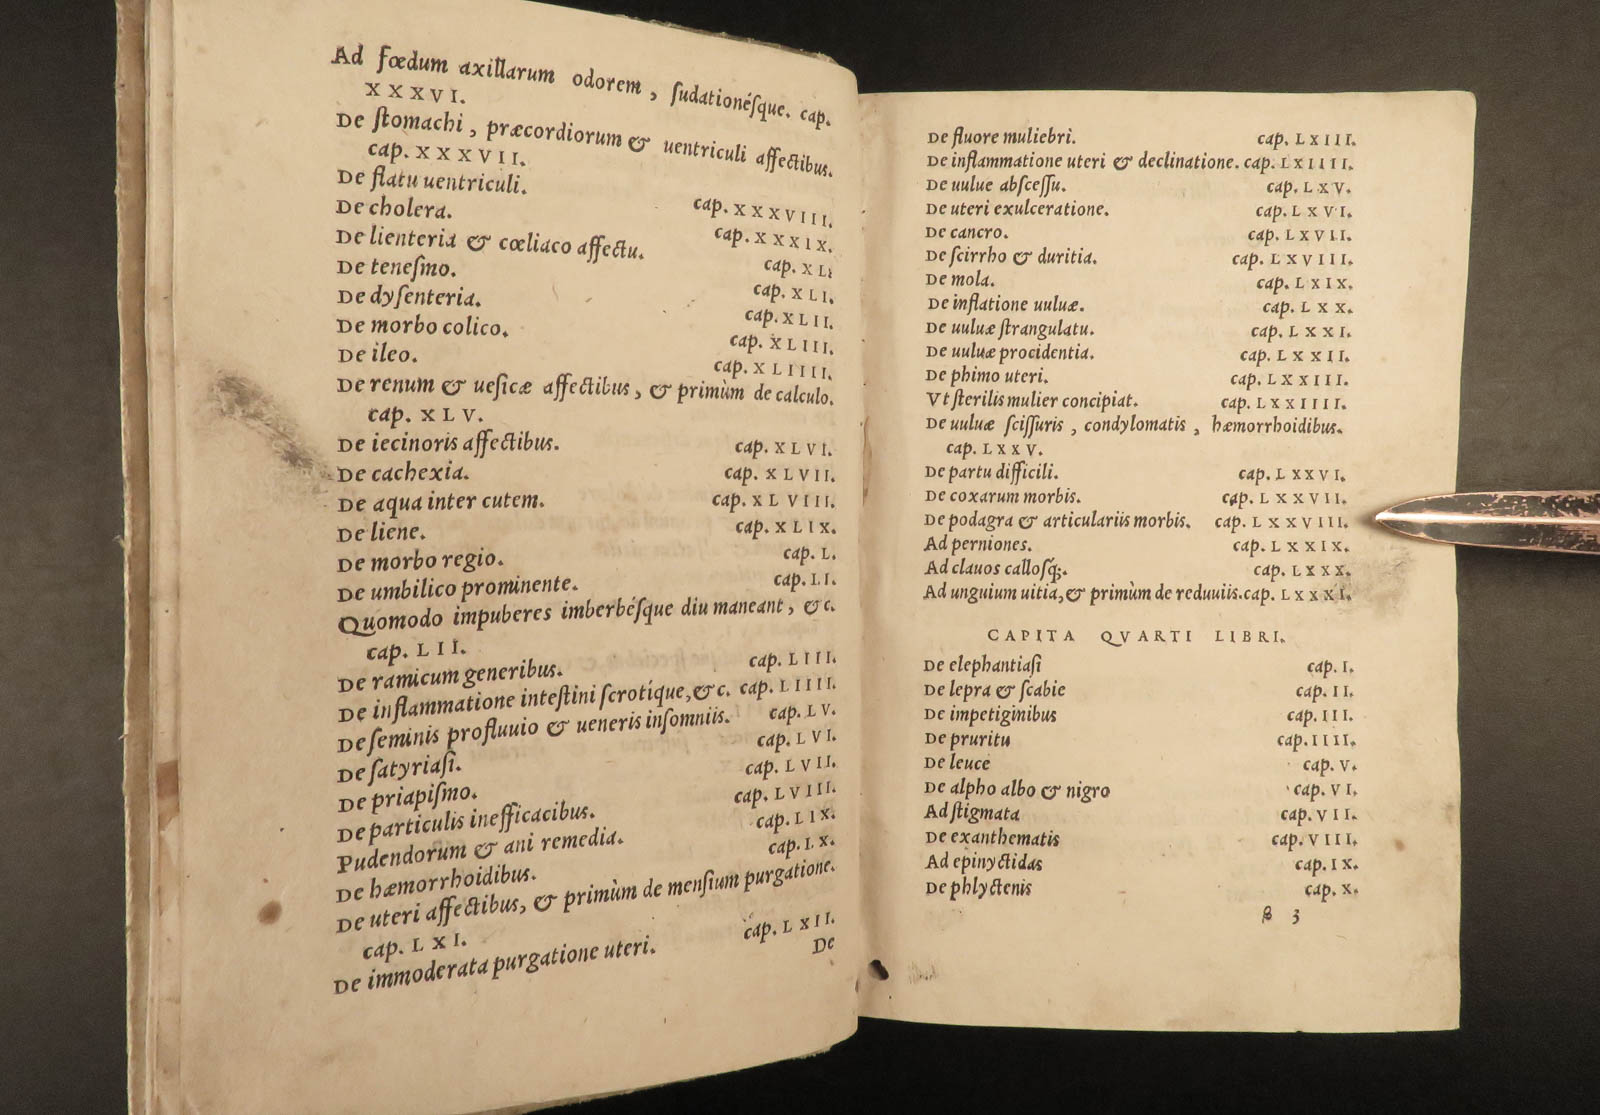 Ad fœdum axillarum odorem, ſudationéſque. cap.
XXXVI.
De ſtomachi, præcordiorum & uentriculi affectibus.
cap. XXXVII.
De flatu uentriculi. cap. XXXVIII.
De cholera. cap. XXXIX.
De lienteria & cœliaco affectu. cap. XL.
De teneſmo. cap. XLI.
De dyſenteria. cap. XLII.
De morbo colico. cap. XLIII.
De ileo. cap. XLIIII.
De renum & ueſicæ affectibus, & primùm de calculo.
cap. XLV.
De iecinoris affectibus. cap. XLVI.
De cachexia. cap. XLVII.
De aqua inter cutem. cap. XLVIII.
De liene. cap. XLIX.
De morbo regio. cap. L.
De umbilico prominente. cap. LI.
Quomodo impuberes imberbéſque diu maneant, &c.
cap. LII.
De ramicum generibus. cap. LIII.
De inflammatione inteſtini ſcrotíque, &c. cap. LIIII.
De ſeminis profluuio & ueneris inſomniis. cap. LV.
De ſatyriaſi. cap. LVI.
De priapiſmo. cap. LVII.
De particulis inefficacibus. cap. LVIII.
Pudendorum & ani remedia. cap. LIX.
De hæmorrhoidibus. cap. LX.
De uteri affectibus, & primùm de menſium purgatione.
cap. LXI.
De immoderata purgatione uteri. cap. LXII.
De
De fluore muliebri. cap. LXIII.
De inflammatione uteri & declinatione. cap. LXIIII.
De uulue abſceſſu. cap. LXV.
De uteri exulceratione. cap. LXVI.
De cancro. cap. LXVII.
De ſcirrho & duritia. cap. LXVIII.
De mola. cap. LXIX.
De inflatione uuluæ. cap. LXX.
De uuluæ ſtrangulatu. cap. LXXI.
De uuluæ procidentia. cap. LXXII.
De phimo uteri. cap. LXXIII.
Vt ſterilis mulier concipiat. cap. LXXIIII.
De uuluæ ſciſſuris, condylomatis, hæmorrhoidibus.
cap. LXXV.
De partu difficili. cap. LXXVI.
De coxarum morbis. cap. LXXVII.
De podagra & articulariis morbis. cap. LXXVIII.
Ad perniones. cap. LXXIX.
Ad clauos calloſq;. cap. LXXX.
Ad unguium uitia, & primùm de reduuiis. cap. LXXXI.
CAPITA QVARTI LIBRI.
De elephantiaſi cap. I.
De lepra & ſcabie cap. II.
De impetiginibus cap. III.
De pruritu cap. IIII.
De leuce cap. V.
De alpho albo & nigro cap. VI.
Ad ſtigmata cap. VII.
De exanthematis cap. VIII.
Ad epinyctidas cap. IX.
De phlyctenis cap. X.
β 3